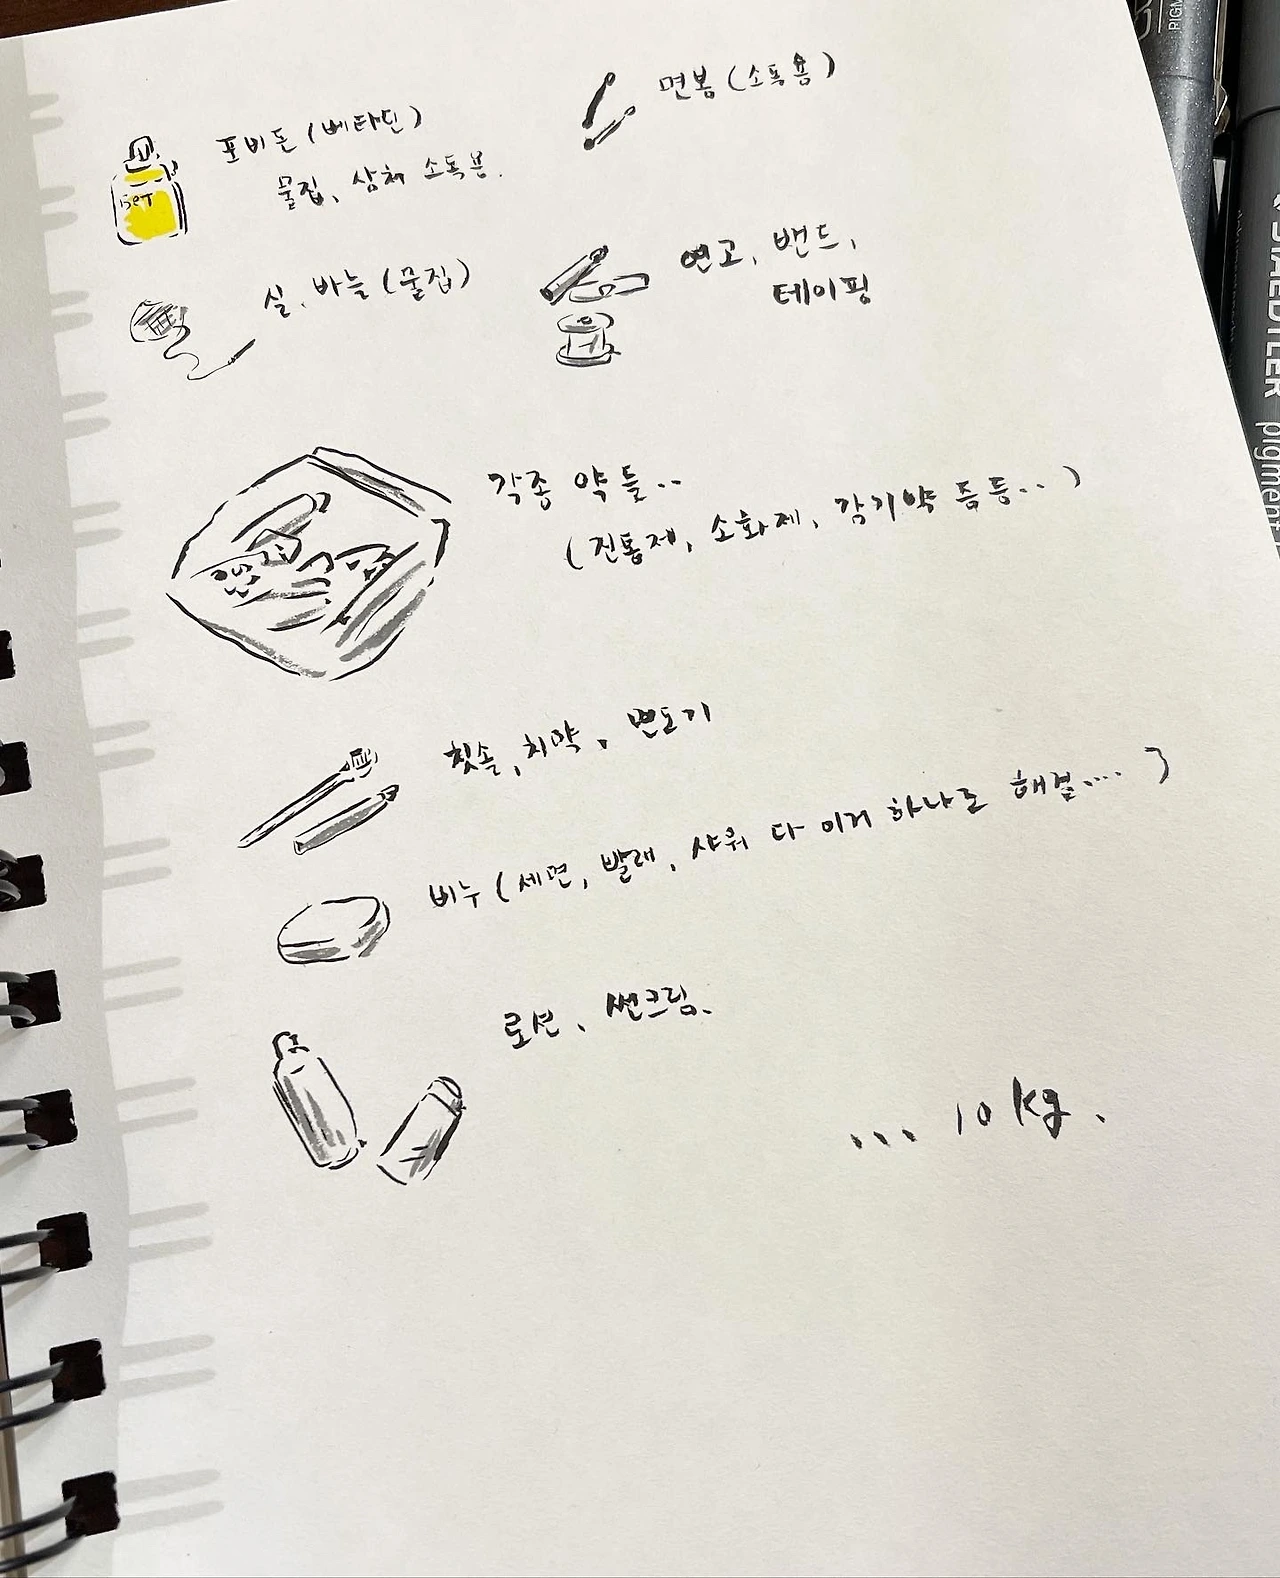 포비돈 (베타딘)
물집, 상처 소독용.
Bet
면봉 (소독용)
실, 바늘 (물집)
연고, 밴드,
테이핑
각종 약들..
(진통제, 소화제, 감기약 등등..)
칫솔, 치약, 면도기
비누 (세면, 빨래, 샤워 다 이거 하나로 해결....)
로션, 썬크림.
... 10kg.
STAEDTLER pigment
PIGM